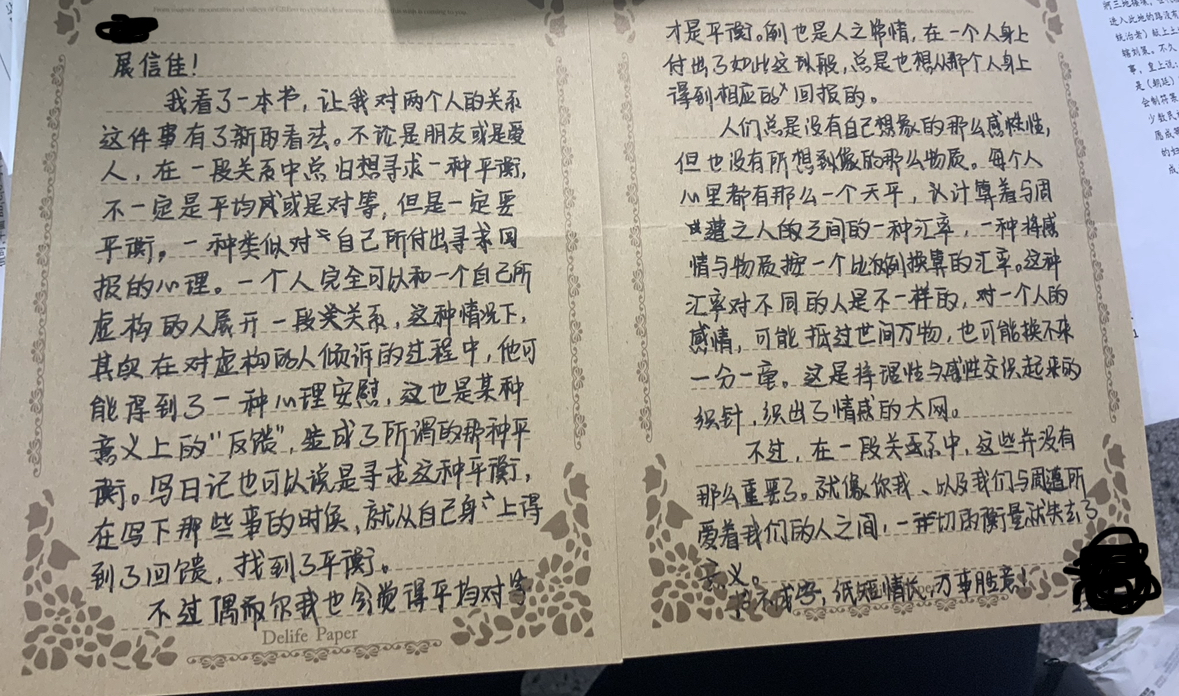 展信佳!
我看了一本书,让我对两个人的关系
这件事有了新的看法。不论是朋友或是爱
人,在一段关系中总归想寻求一种平衡,
不一定是平均或是对等,但是一定要
平衡。一种类似对自己所付出寻求回
报的心理。一个人完全可以和一个自己所
虚构的人展开一段关系,这种情况下,
其实在对虚构的人倾诉的过程中,他可
能得到了一种心理安慰,这也是某种
意义上的“反馈”,造成了所谓的那种平
衡。写日记也可以说是寻求这种平衡,
在写下那些事的时候,就从自己身上得
到了回馈,找到了平衡。
不过偶尔我也会觉得平均对等
Delife Paper
才是平衡。倒也是人之常情,在一个人身上
付出了如此这般,总是也想从那个人身上
得到相应的回报的。
人们总是没有自己想象的那么感性,
但也没有所想象的那么物质。每个人
心里都有那么一个天平,计算着与周
遭之人的之间的一种汇率,一种将感
情与物质按一个比例换算的汇率。这种
汇率对不同的人是不一样的,对一个人的
感情,可能抵过世间万物,也可能换不来
一分一毫。这是将理性与感性交织起来的
织针,织出了情感的大网。
不过,在一段关系中,这些并没有
那么重要了。就像你我、以及我们与周遭所
爱着我们的人之间,一切的衡量就失去了
意义。
拙不成字,纸短情长,万事胜意!